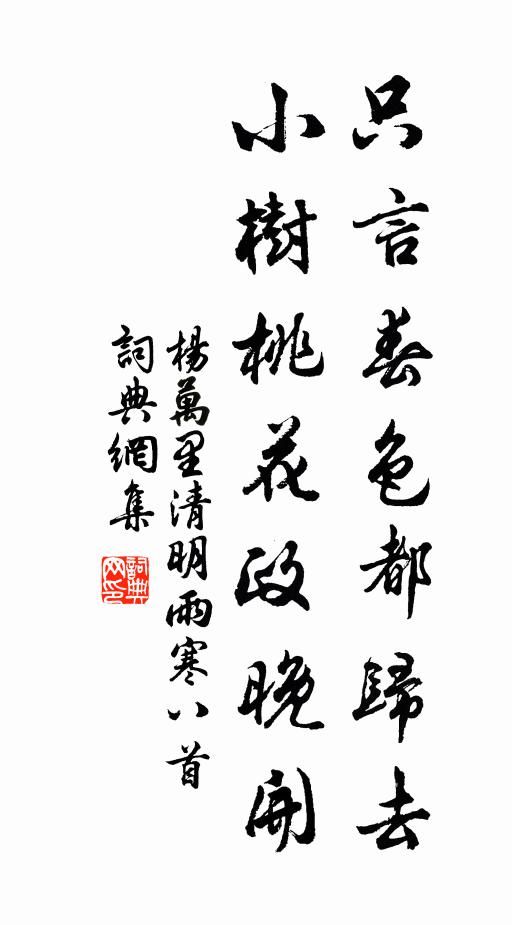 只言春色都歸去
小樹桃花政晚開
楊萬里清明雨寒八首
詞典網集
詞典
网印